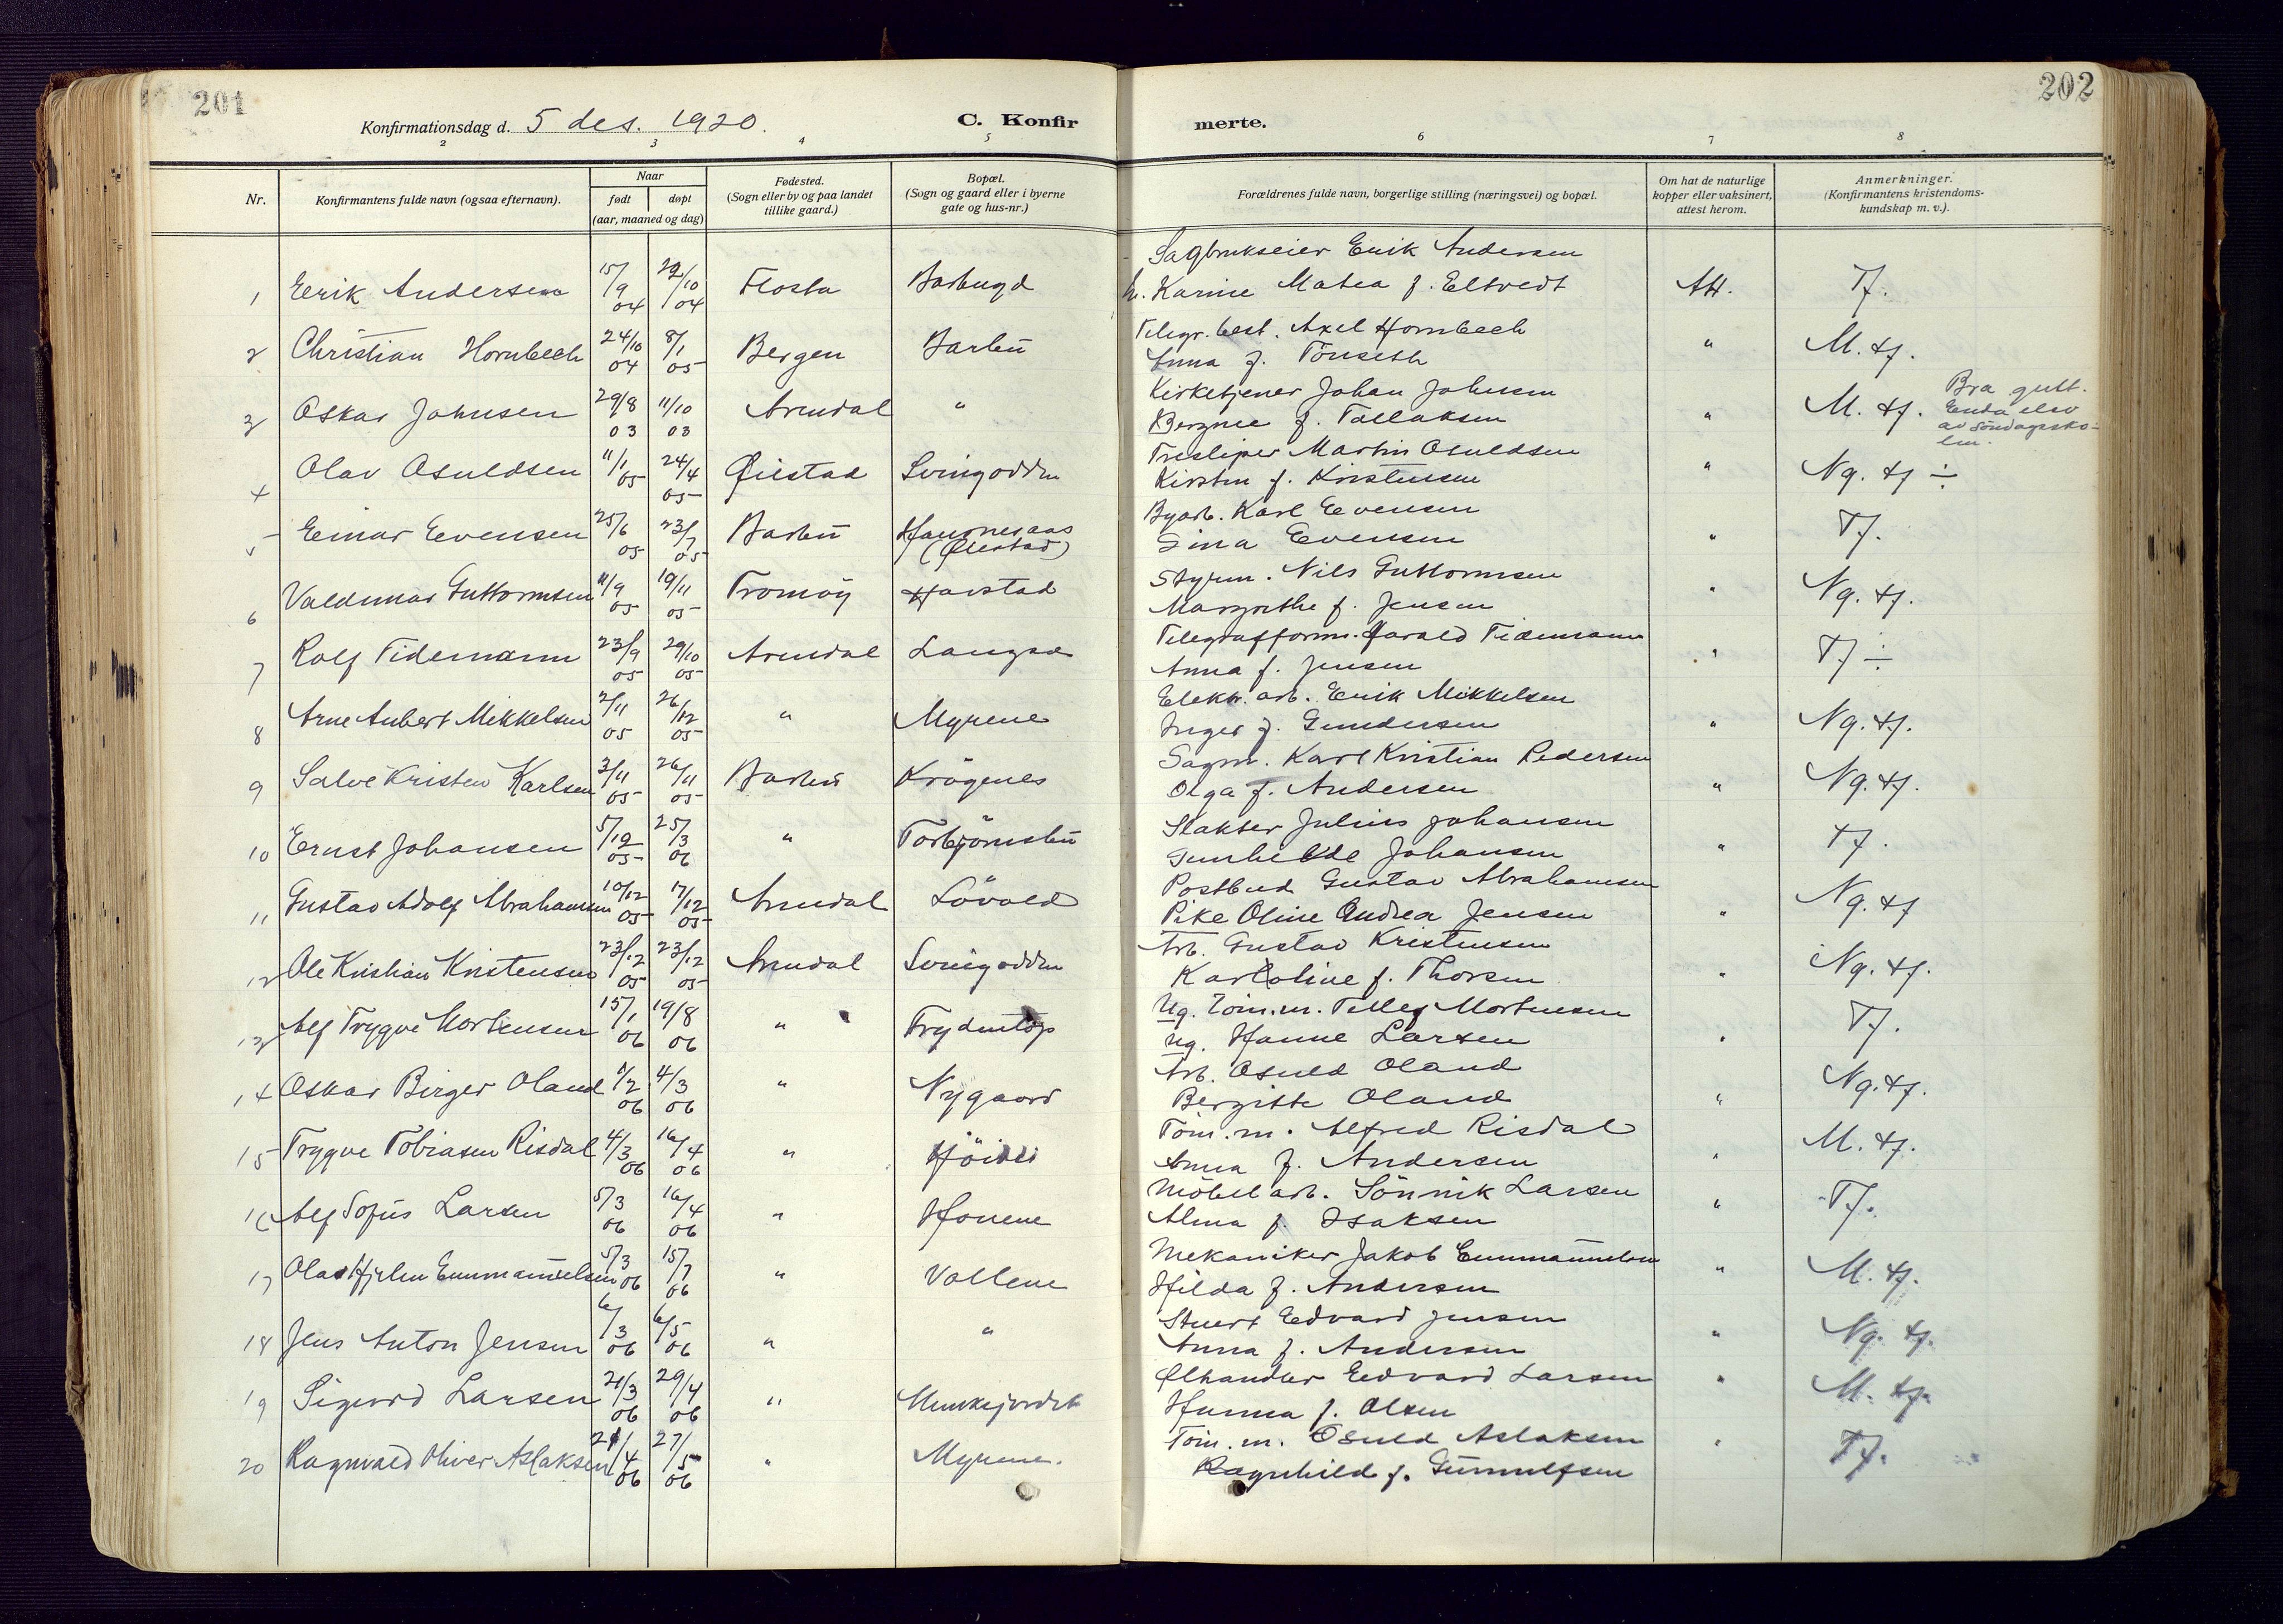 201
202
Konfirmationsdag d. 5 des. 1920.
C. Konfirmerte.
2 3 4 5 6 7 8
Nr.
Konfirmantens fulde navn (ogsaa efternavn).
Naar
født døpt
(aar, maaned og dag)
Fødested.
(Sogn eller by og paa landet
tillike gaard.)
Bopæl.
(Sogn og gaard eller i byerne
gate og hus-nr.)
Forældrenes fulde navn, borgerlige stilling (næringsvei) og bopæl.
Om hat de naturlige
kopper eller vaksinert,
attest herom.
Anmerkninger.
(Konfirmantens kristendoms-
kundskap m. v.).
Sagbrukseier Erik Andersen
1 Erik Andersen 15/9 04 22/10 04 Flosta Barbugd Karine Matea f. Eltvedt Att. Tf.
Telegr. best. Axel Hornbech
2 Christian Hornbech 24/10 04 8/1 05 Bergen Barbu Anna f. Tönseth " M. tf.
Kirketjener Johan Johnsen
3 Oskar Johnsen 29/8 03 11/10 03 Arendal " Bergine f. Tallaksen " M. tf. Bra gutt.
Enda elev
av söndagssko-
len.
Tresliper Martin Osuldsen
4 Olav Osuldsen 11/1 05 24/4 05 Øiestad Svingodden Kirsten f. Kristensen " Ng. tf ÷
Byarb. Karl Evensen
5 Einar Evensen 25/6 05 23/7 05 Barbu Haurnesaas
(Øiestad) Sina Evensen " Tf.
Styrm. Nils Guttormsen
6 Valdemar Guttormsen 11/9 05 19/11 05 Tromöy Harstad Margrethe f. Jensen " Ng. tf.
Telegrafform. Harald Tidemann
7 Rolf Tidemann 23/9 05 29/10 05 Arendal Langsæ Anna f. Jensen " Tf ÷
Elektr. arb. Erik Mikkelsen
8 Arne Aubert Mikkelsen 2/11 05 26/12 05 " Myrene Inger f. Gundersen " Ng. tf.
Sagm. Karl Kristian Pedersen
9 Salve Kristen Karlsen 3/11 05 26/11 05 Barbu Krögenes Olga f. Andersen " Ng. tf.
Slakter Julius Johansen
10 Ernst Johansen 5/12 05 25/3 06 " Torbjörnsbu Gunhilde Johansen " Tf.
Postbud Gustav Abrahamsen
11 Gustav Adolf Abrahamsen 10/12 05 17/12 05 Arendal Lövold Pike Oline Andrea Jensen " Ng. tf
Arb. Gustav Kristensen
12 Ole Kristian Kristensen 23/12 05 23/12 05 Arendal Svingodden Karoline f. Thorsen " Ng. tf.
Ug. Töm.m. Tellef Mortensen
13 Alf Trygve Mortensen 15/1 06 19/8 06 " Frydentop ug. Hanne Larsen " Tf.
Arb. Osuld Oland
14 Oskar Birger Oland 1/2 06 4/3 06 " Nygaard Bergitte Oland " Ng. tf.
Töm.m. Alfred Risdal
15 Trygve Tobiasen Risdal 4/3 06 16/4 06 " Anna f. Andersen " M. tf.
Möbelarb. Sönnik Larsen
16 Alf Sofus Larsen 5/3 06 16/4 06 " Hovene Alma f. Isaksen " Tf.
Mekaniker Jakob Emmanuelsen
17 Olav Hjelm Emmanuelsen 5/3 06 15/7 06 " Vollene Hilda f. Andersen " M. tf.
Stuert Edvard Jensen
18 Jens Anton Jensen 6/3 06 6/5 06 " " Anna f. Andersen " Ng. tf.
Ølhandler Edvard Larsen
19 Sigurd Larsen 21/3 06 29/4 06 " Munkejordet Hanna f. Olsen " M. tf.
Töm.m. Osuld Aslaksen
20 Ragnvald Oliver Aslaksen 21/4 06 27/5 06 " Myrene. Ragnhild f. Gunnulfsen " Tf.